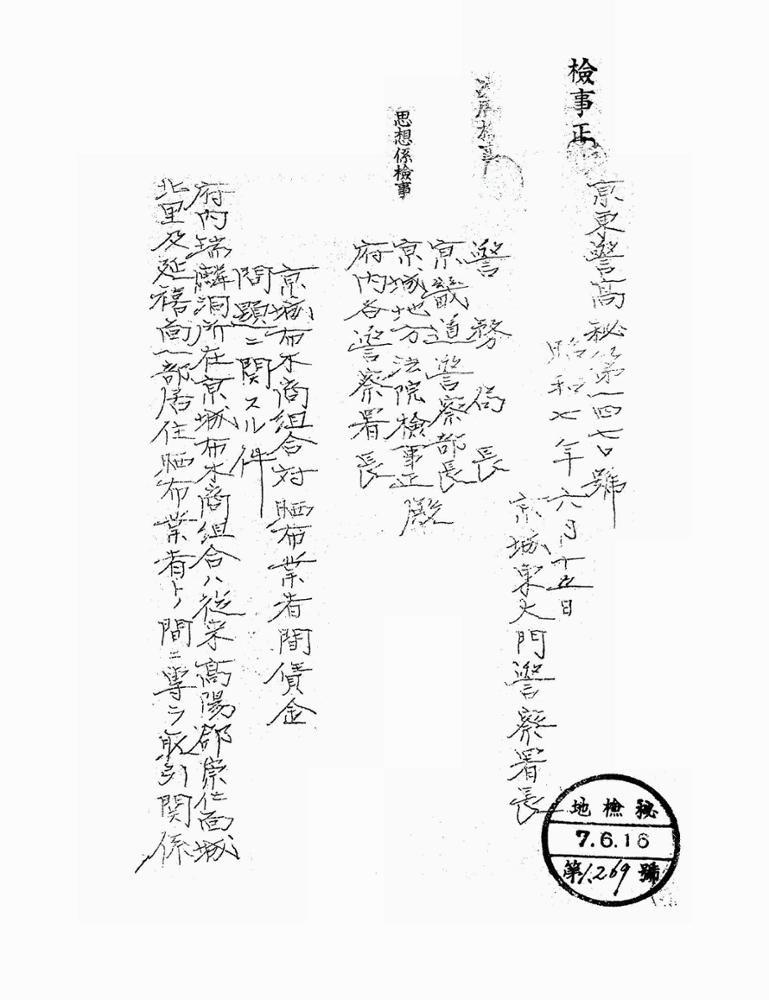 檢事正
次席檢事
思想係檢事
京東警高秘第一四七〇號
昭和七年六月十五日
京城東大門警察署長
警務局長
京畿道警察部長
京城地方法院檢事正殿
府內各警察署長
京城布木商組合対晒布業者間債金
問題ニ関スル件
府內瑞麟洞所在京城布木商組合ハ従来高陽郡崇仁面城
北里及延禧面一部居住晒布業者トノ間ニ專ラ取引関係
地檢秘
7.6.16
第1,269號